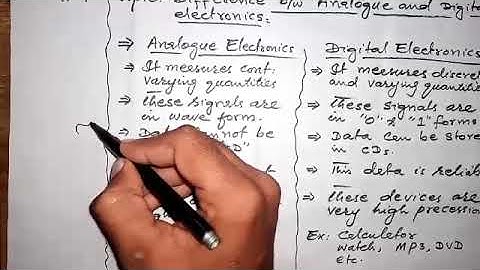 Topic: Difference b/w Analogue and Digital
electronics:
⇒ Analogue Electronics
⇒ It meesures cont:
varying quantities
⇒ These signals are
in wave form.
⇒ Data cannot be
in "CD"
Digital Electronics
⇒ It meesures discre
and varying quantitie
⇒ These signals are
in "0" & "1" forms
⇒ Data can be store
in CDs.
⇒ This data is reliab
⇒ These devices are
very high precession
Ex: Calculator
watch, MP3, DVD
etc.